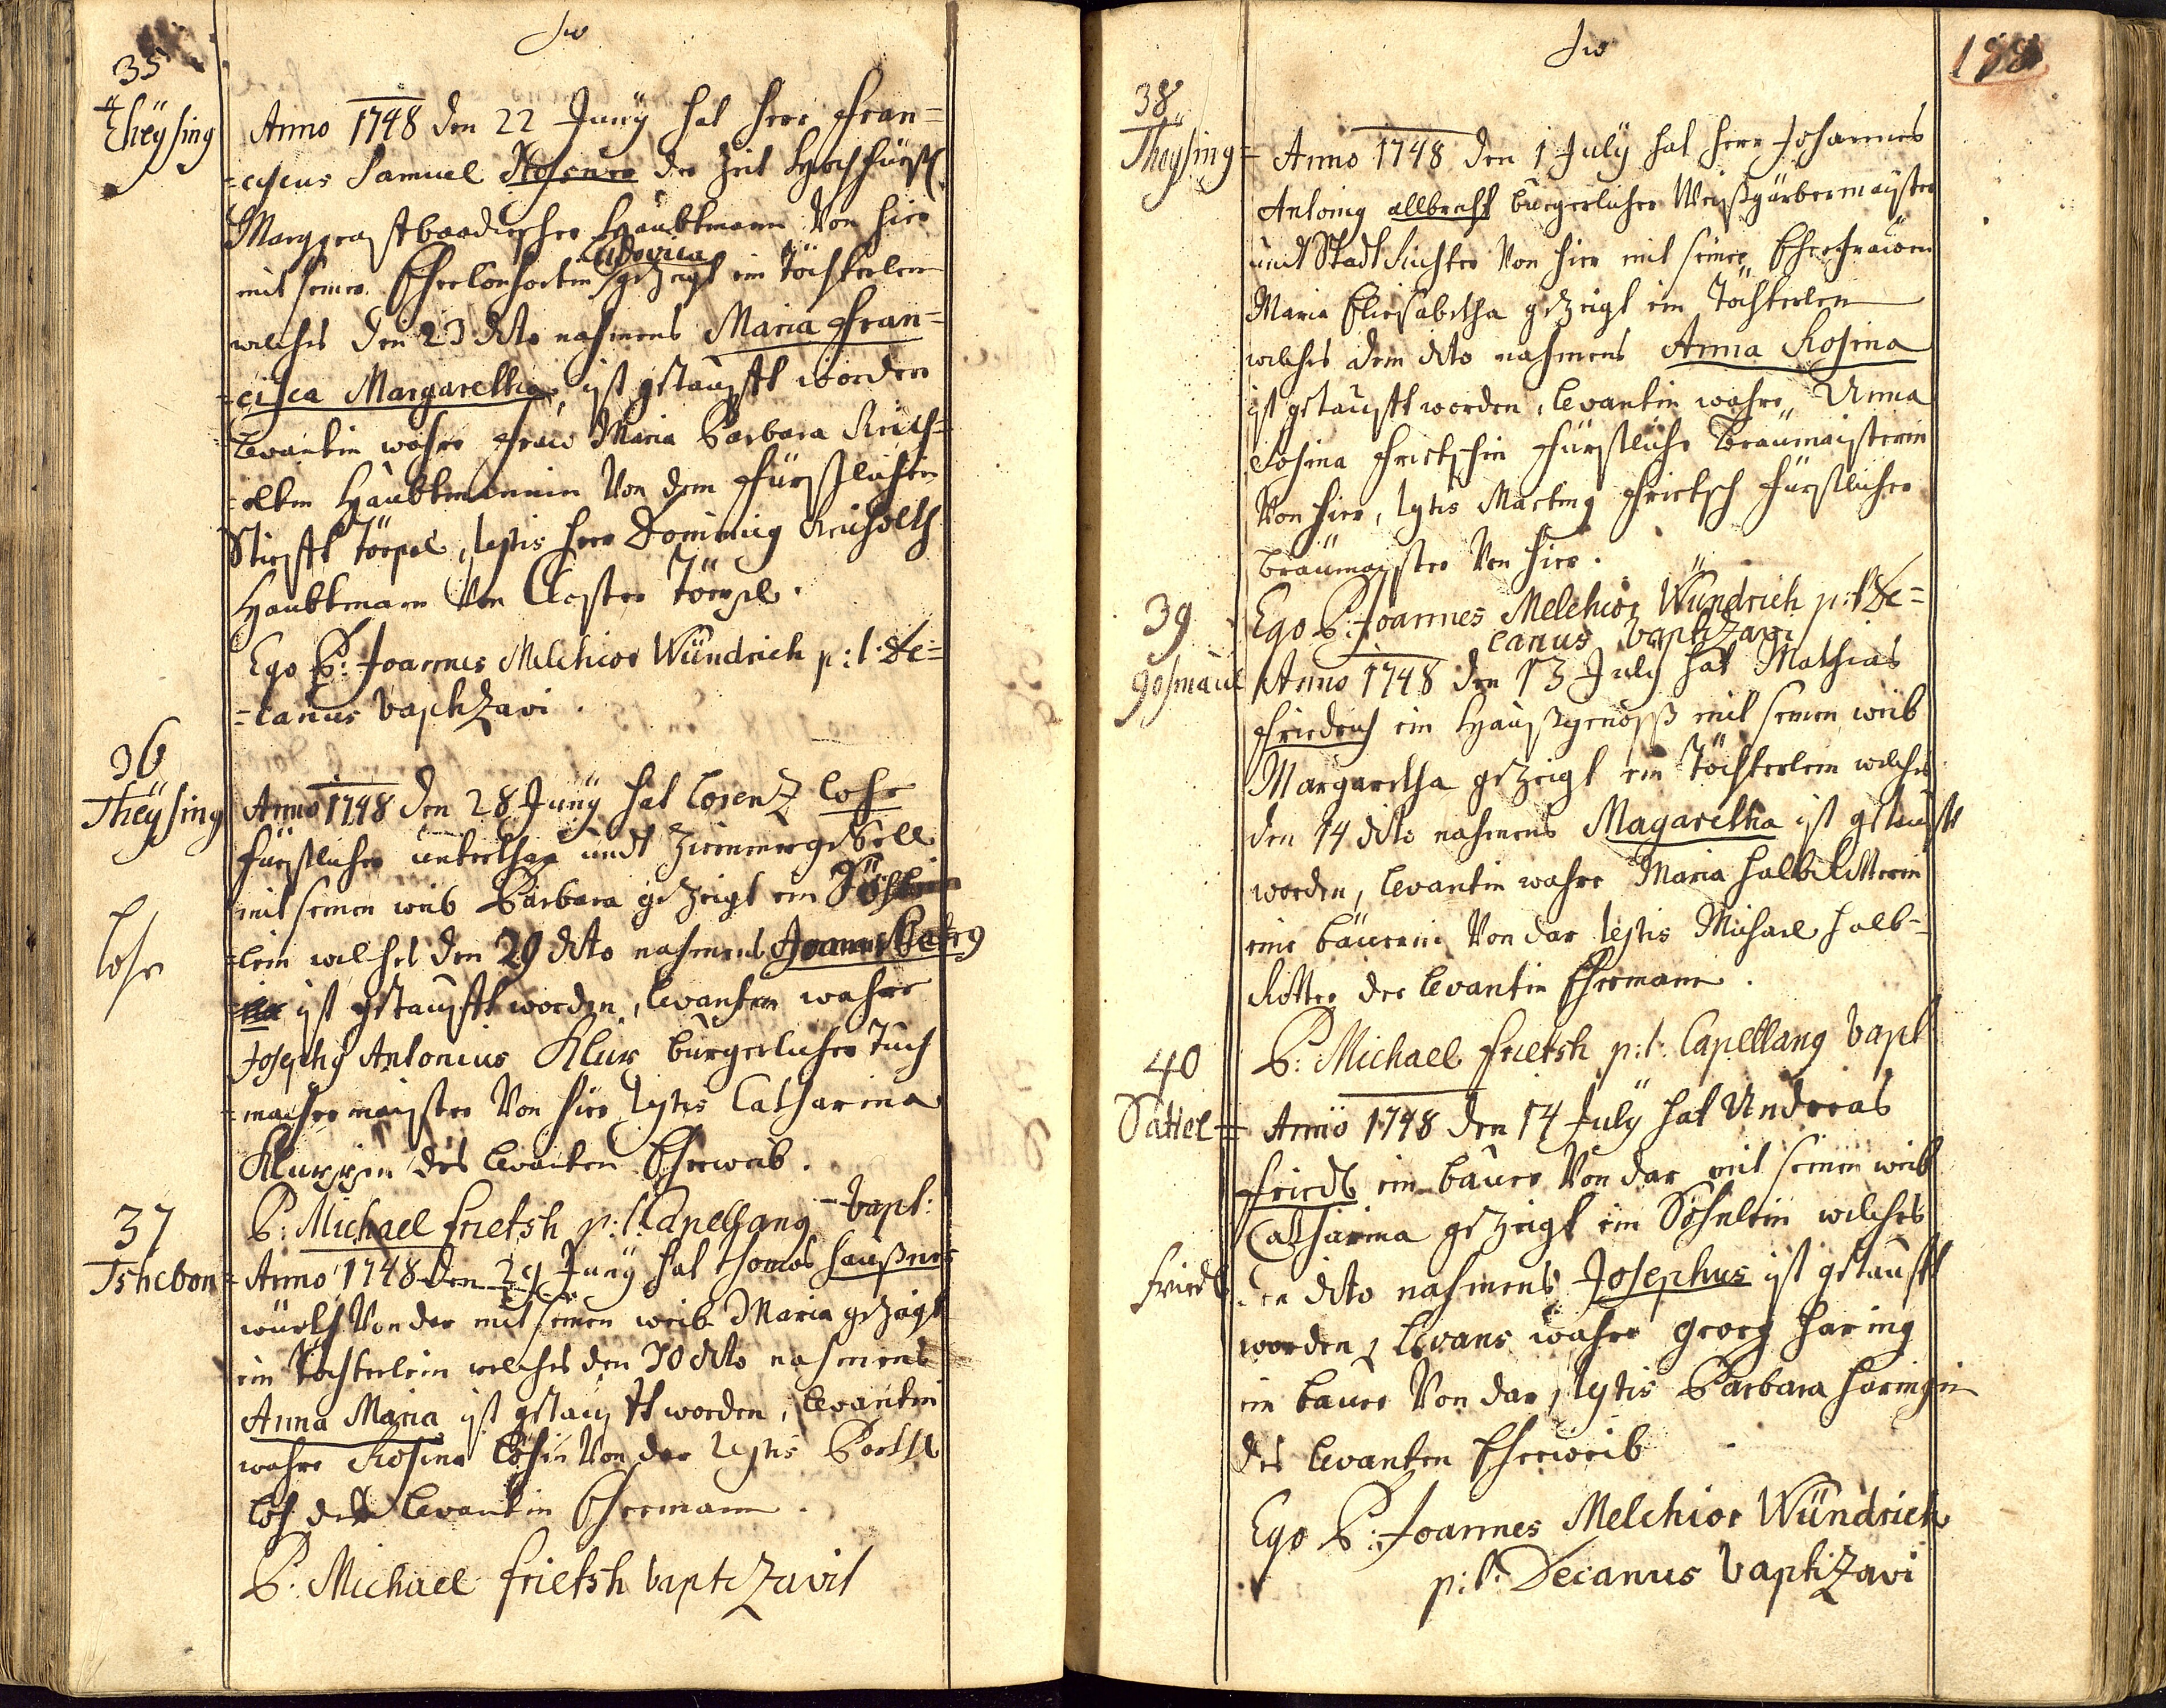 35
Theysing
Anno 1748 den 22 Juny hat herr Fran=
=ciscus Samuel Rosner der Zeit Hochfürstl
Marggrafftbaadischer Haubtmann Von hier
Ludovica
mit seiner Eheconsortin gezeigt ein Töchterlein
welches den 23 dito nahmens Maria Fran=
=cisca Margaretha, ist getaufft worden
levantin wahre Fraw Maria Barbara Reich=
=oltin Haubtmannin Von dem Fürstlichen
Stiefft Töepel, testis herr Dominicus Reicholth
Haubtmann Von Closter Töepel.
Ego P: Joannes Melchior Wündrich p: t. De=
=canus baptizavi.
36
Theysing
Lohr
Anno 1748 den 28 Juny hat Lorenz Lohr
fürstlicher unterthan undt Ziemmergesell
mit seinen weib Barbara gezeigt ein Söhn
=lein welches den 29 dito nahmens Joannes Petrus
ist getaufft worden, levanten wahre
Josephus Antonius Klux burgerlicher Tuch
=macher mayster Von hier testis Catharina
Kluxin des levanten Eheweib.
P: Michael frietsh p: t. Capellanus bapt:
37
Tshebon
Anno 1748 den 29 Juny hat Thomas haußner
würth Von dar mit seinen weib Maria gezeigt
ein Töchterlein welches den 30 dito nahmens
Anna Maria ist getaufft worden, levantin
wahre Rosina Löhin Von dar testis Barthl
Löh der levantin Ehemann.
P. Michael frietsh baptizavit
188
38
Theysing
Anno 1748 den 1 July hat herr Johannes
Antonius allbrecht burgerlicher Weißgärbermayster
undt Stadt Richter Von hier mit seiner Ehefrawen
Maria Eliesabetha gezeigt ein Töchterlein
welches dem dito nahmens Anna Rosina
ist getaufft worden, levantin wahre Anna
Rosina Frietschin Fürstliche Bräumaisterin
Von hier, testis Martinus Frietsch Fürstlicher
Bräumayster Von hier.
Ego P: Joannes Melchior Wündrich p: t De=
canus baptizavi
39
Gosmaul
Anno 1748 den 13 July hat Mathias
Friedrich ein Haußgenosß mit seinen weib
Margaretha gezeigt ein Töchterlein welches
den 14 dito nahmens Magaretha ist getaufft
worden, levantin wahre Maria halbRitterin
eine bäuerin Von dar testis Michael halb=
Ritter der levantin Ehemann.
P: Michael Frietsh p: t. Capellanus bapt
40
Sattel
Friedl
Anno 1748 den 14 July hat Andreas
Friedl ein bauer Von dar mit seinen weib
Catharina gezeigt ein Söhnlein welches
den dito nahmens Josephus ist getaufft
worden, levans wahre Georg haring
ein bauer Von dar, testis Barbara haringin
des levanten Eheweib
Ego P: Joannes Melchior Wündrich
p: t. Decanus baptizavi